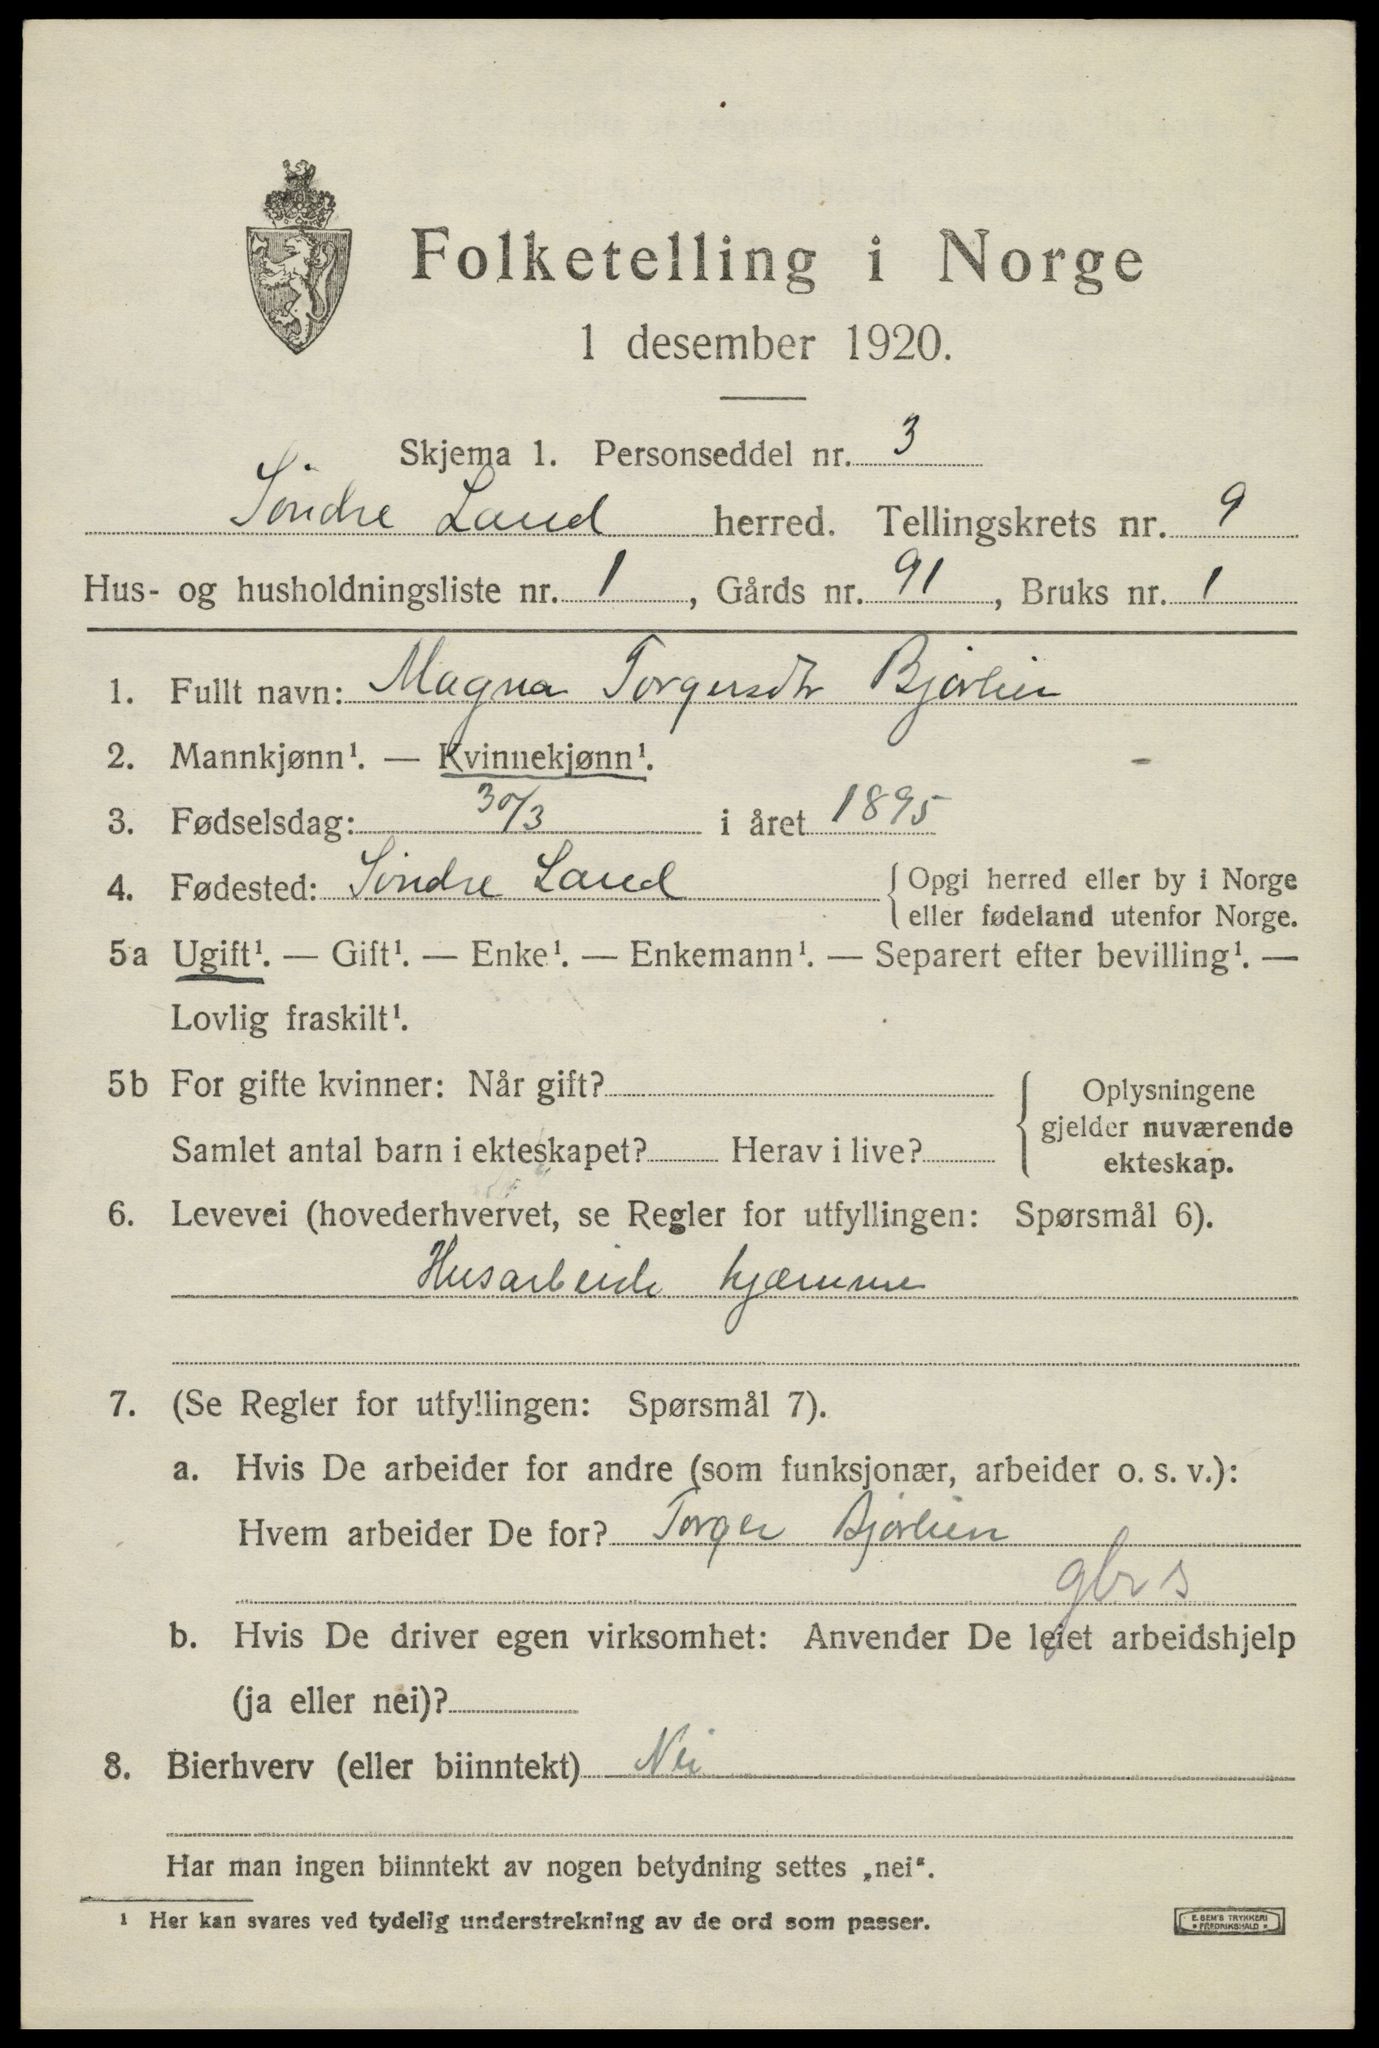 Folketelling i Norge
1 desember 1920.
Skjema 1. Personseddel nr. 3
Söndre Land herred. Tellingskrets nr. 9
Hus- og husholdningsliste nr. 1, Gårds nr. 91, Bruks nr. 1
1. Fullt navn: Magna Torgersdtr Bjørlien
2. Mannkjønn¹. — Kvinnekjønn¹.
3. Fødselsdag: 30/3 i året 1895
4. Fødested: Söndre Land { Opgi herred eller by i Norge
eller fødeland utenfor Norge.
5a Ugift¹. — Gift¹. — Enke¹. — Enkemann¹. — Separert efter bevilling¹. —
Lovlig fraskilt¹.
5b For gifte kvinner: Når gift? { Oplysningene
gjelder nuværende
Samlet antal barn i ekteskapet? Herav i live? ekteskap.
6. Levevei (hovederhvervet, se Regler for utfyllingen: Spørsmål 6).
Husarbeide hjemme
7. (Se Regler for utfyllingen: Spørsmål 7).
a. Hvis De arbeider for andre (som funksjonær, arbeider o. s. v.):
Hvem arbeider De for? Torger Bjørlien
gbr s
b. Hvis De driver egen virksomhet: Anvender De leiet arbeidshjelp
(ja eller nei)?
8. Bierhverv (eller biinntekt) Nei
Har man ingen biinntekt av nogen betydning settes „nei“.
¹ Her kan svares ved tydelig understrekning av de ord som passer.
E. SEM'S TRYKKERI
• FREDRIKSHALD •